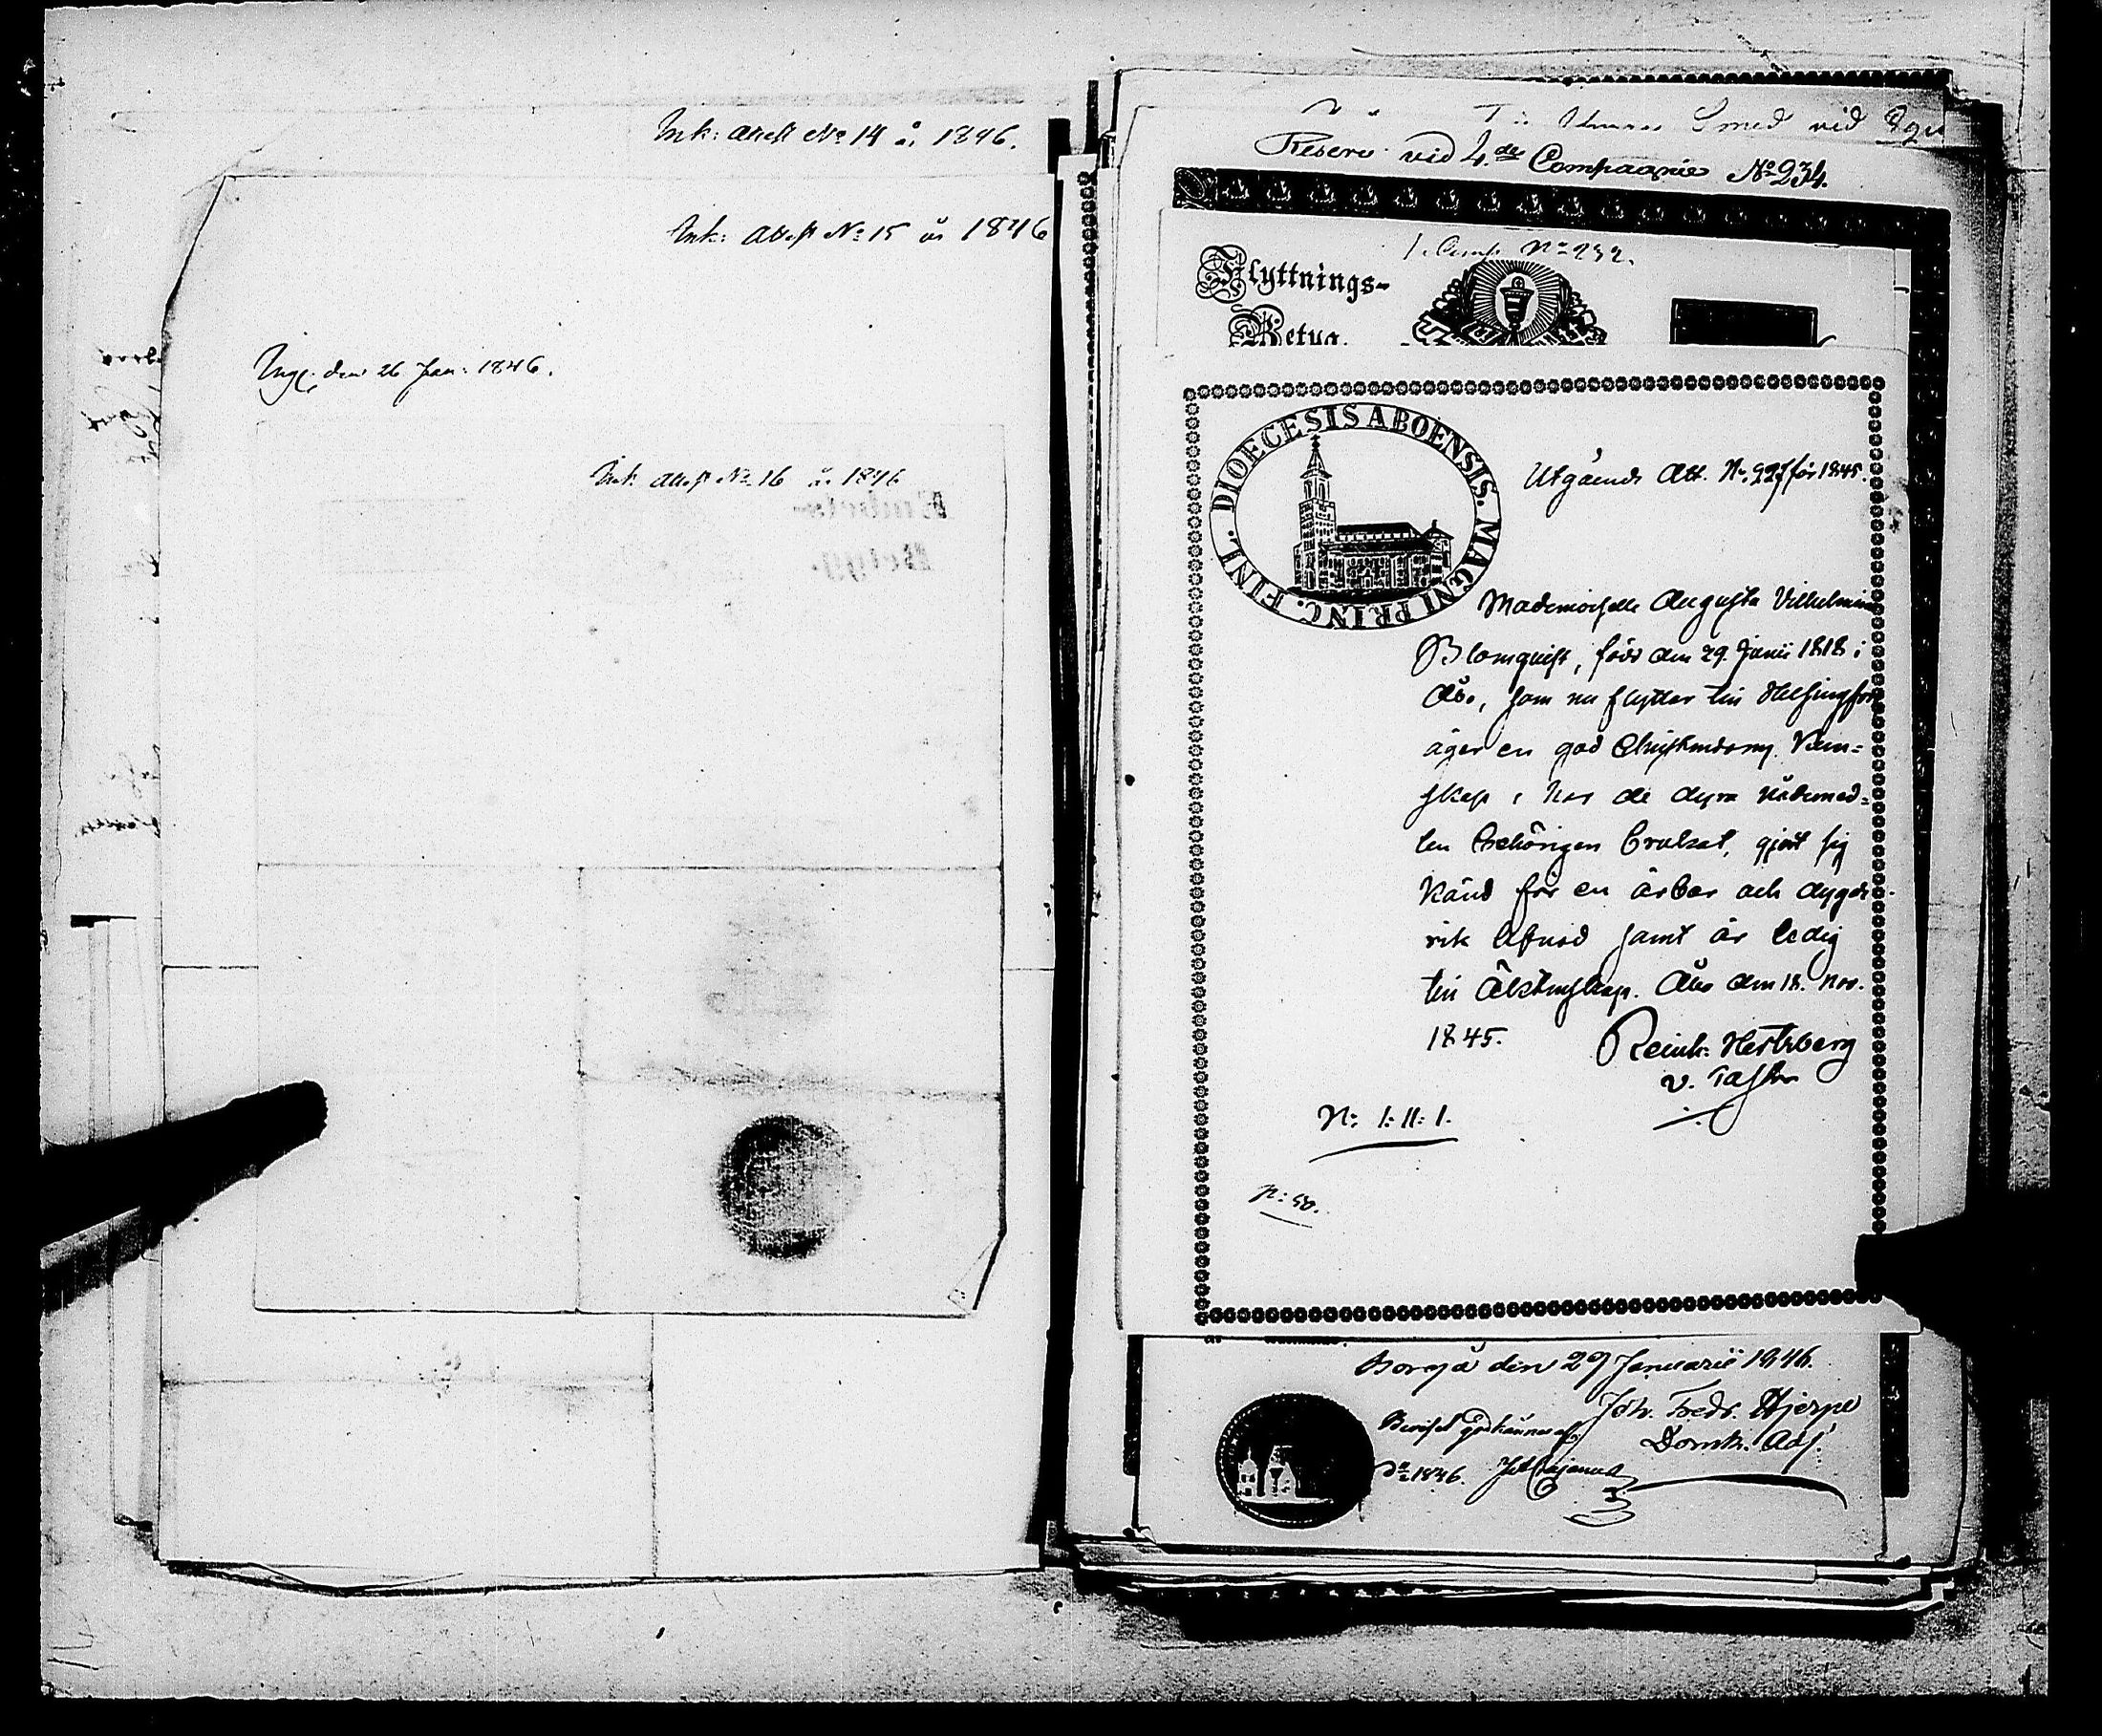 Ink: Attest No 14 år 1846.
Ink: Attest No 15 år 1846
Ing: den 26 Jan: 1846.
Ink: Attest No 16 år 1846
Smed vid
Reserv vid 4.de Compagnie No 234.
Comp No 232.
Flyttnings-
Betyg.
DIOECESIS ABOENSIS. MAGNI PRINC. FINL.
Utgående Att. No. 227 för 1845.
Mademoiselle Augusta Vilhelmina
Blomquist, född den 29. Junii 1818 i
Åbo, som nu flyttar till Helsingfors
äger en god Christendoms Kun-
skap, har de dyra nådemed-
len behörigen brukat, gjort sig
känd för en ärbar och dygd-
rik lefnad samt är ledig
till Äktenskap. Åbo den 18. Nov.
1845.
Reinh. Hertzberg
v. Pastor
N: 1:11:1.
p: 50.
Borgå den 29 Januarii 1846.
Joh. Fredr. Hjerpe
Domk. Adj.
Beviset godkännes
1846.